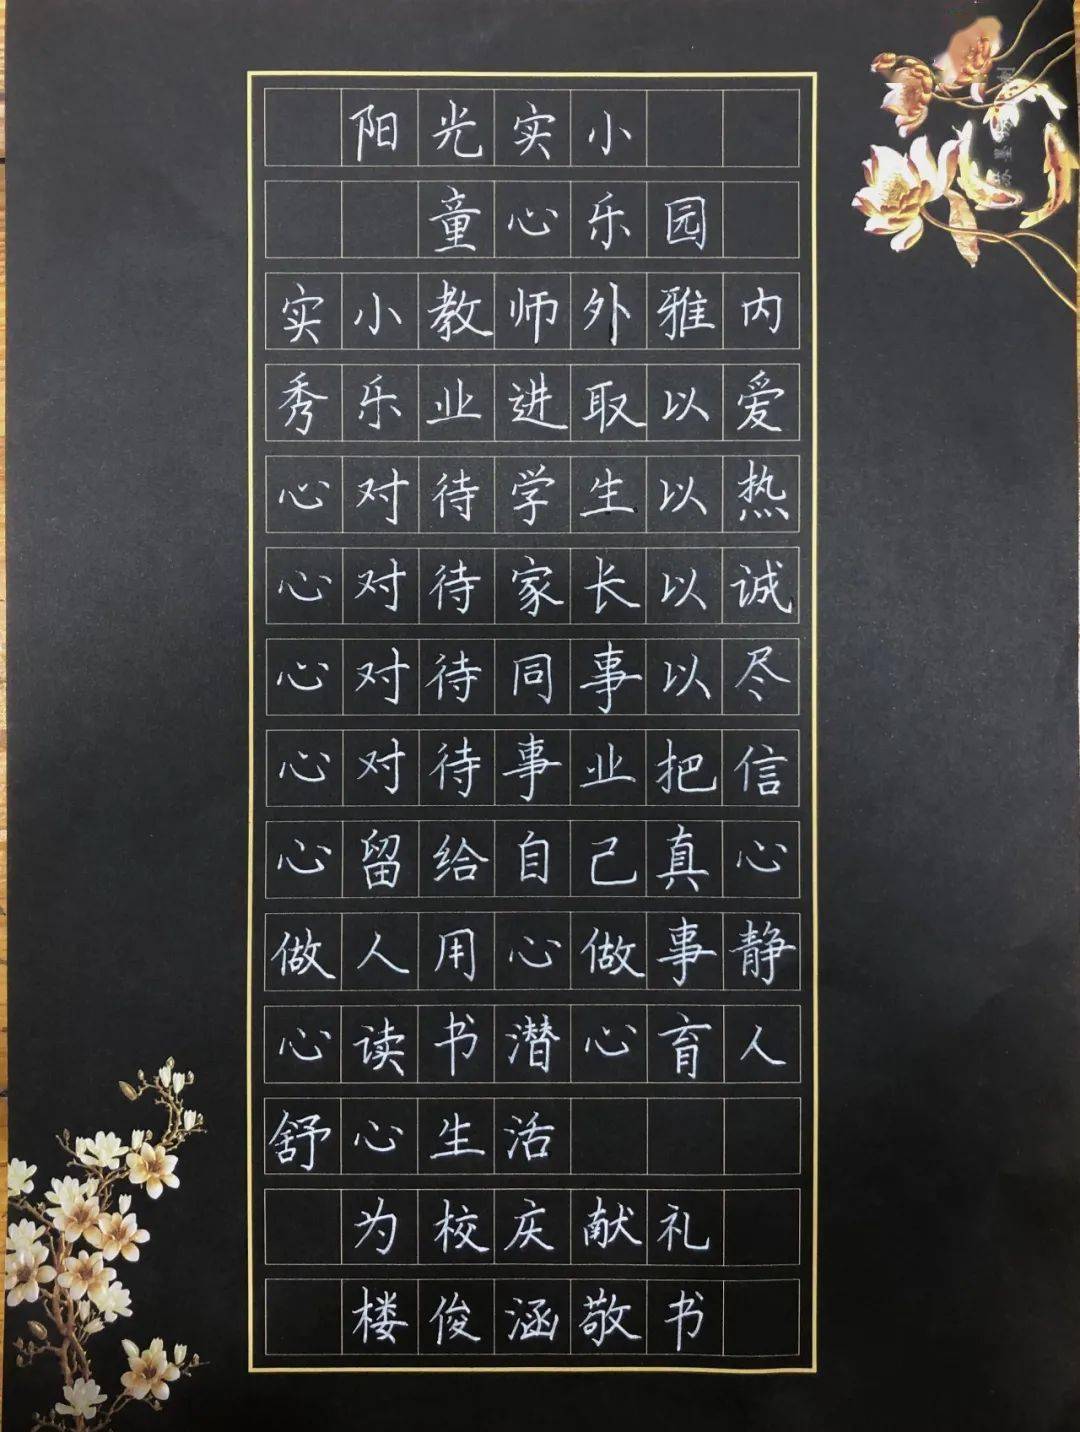 阳光实小
童心乐园
实小教师外雅内
秀乐业进取以爱
心对待学生以热
心对待家长以诚
心对待同事以尽
心对待事业把信
心留给自己真心
做人用心做事静
心读书潜心育人
舒心生活
为校庆献礼
楼俊涵敬书